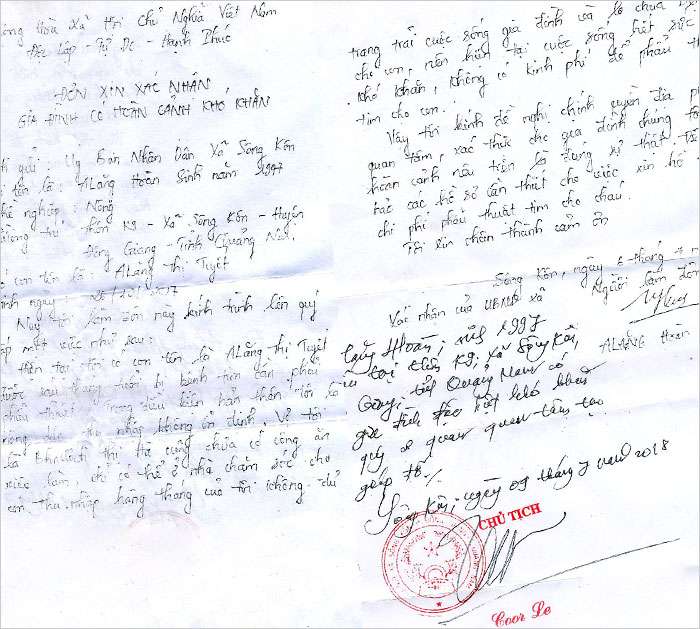 ộng Hoà Xã Hội Chủ Nghĩa Việt Nam
Độc Lập - Tự Do - Hạnh Phúc
ĐƠN XIN XÁC NHẬN
GIA ĐÌNH CÓ HOÀN CẢNH KHÓ KHĂN
h gửi : Uỷ Ban Nhân Dân Xã Sông Kôn
i tên là : ALăng Hoàn Sinh năm 1997
hề nghiệp : Nông
thôn K9 - Xã Sông Kôn - Huyện
Đông Giang - Tỉnh Quảng Nam.
con tên là : ALăng Thị Tuyết
inh ngày : 2017
Nay tôi làm đơn này kính trình lên quý
ấp một việc như sau :
Hiện tại tôi có con tên là ALăng Thị Tuyết
được sáu tháng tuổi bị bệnh tim cần phải
phẫu thuật. Trong điều kiện bản thân tôi là
nông dân thu nhập không ổn định. Vợ tôi
là thị Hà cũng chưa có công ăn
việc làm, chỉ có thể ở nhà chăm sóc cho
con thu nhập hàng tháng của tôi không đủ
trang trải cuộc sống gia đình và lo chữa
cho con, nên hiện tại cuộc sống hết sức
khó khăn, không có kinh phí để phẫu th
tim cho con.
Vậy tôi kính đề nghị chính quyền địa ph
quan tâm, xác thực cho gia đình chúng tô
hoàn cảnh nêu trên là đúng sự thật
các hồ sơ cần thiết cho việc xin hỗ
chi phí phẫu thuật tim cho cháu.
Tôi xin chân thành cảm ơn
Sông Kôn, ngày 8 tháng 7
Xác nhận của UBND xã Người làm đơn
Hoàn, 1997
tại thôn K9, xã Sông Kôn,
tỉnh Quảng Nam có
gia đình đặc biệt khó khăn
quý cơ quan quan tâm tạo
giúp đỡ./.
ALĂNG Hoàn
Sông Kôn, ngày 09 tháng 7 năm 2018
CHỦ TỊCH
Coor Le